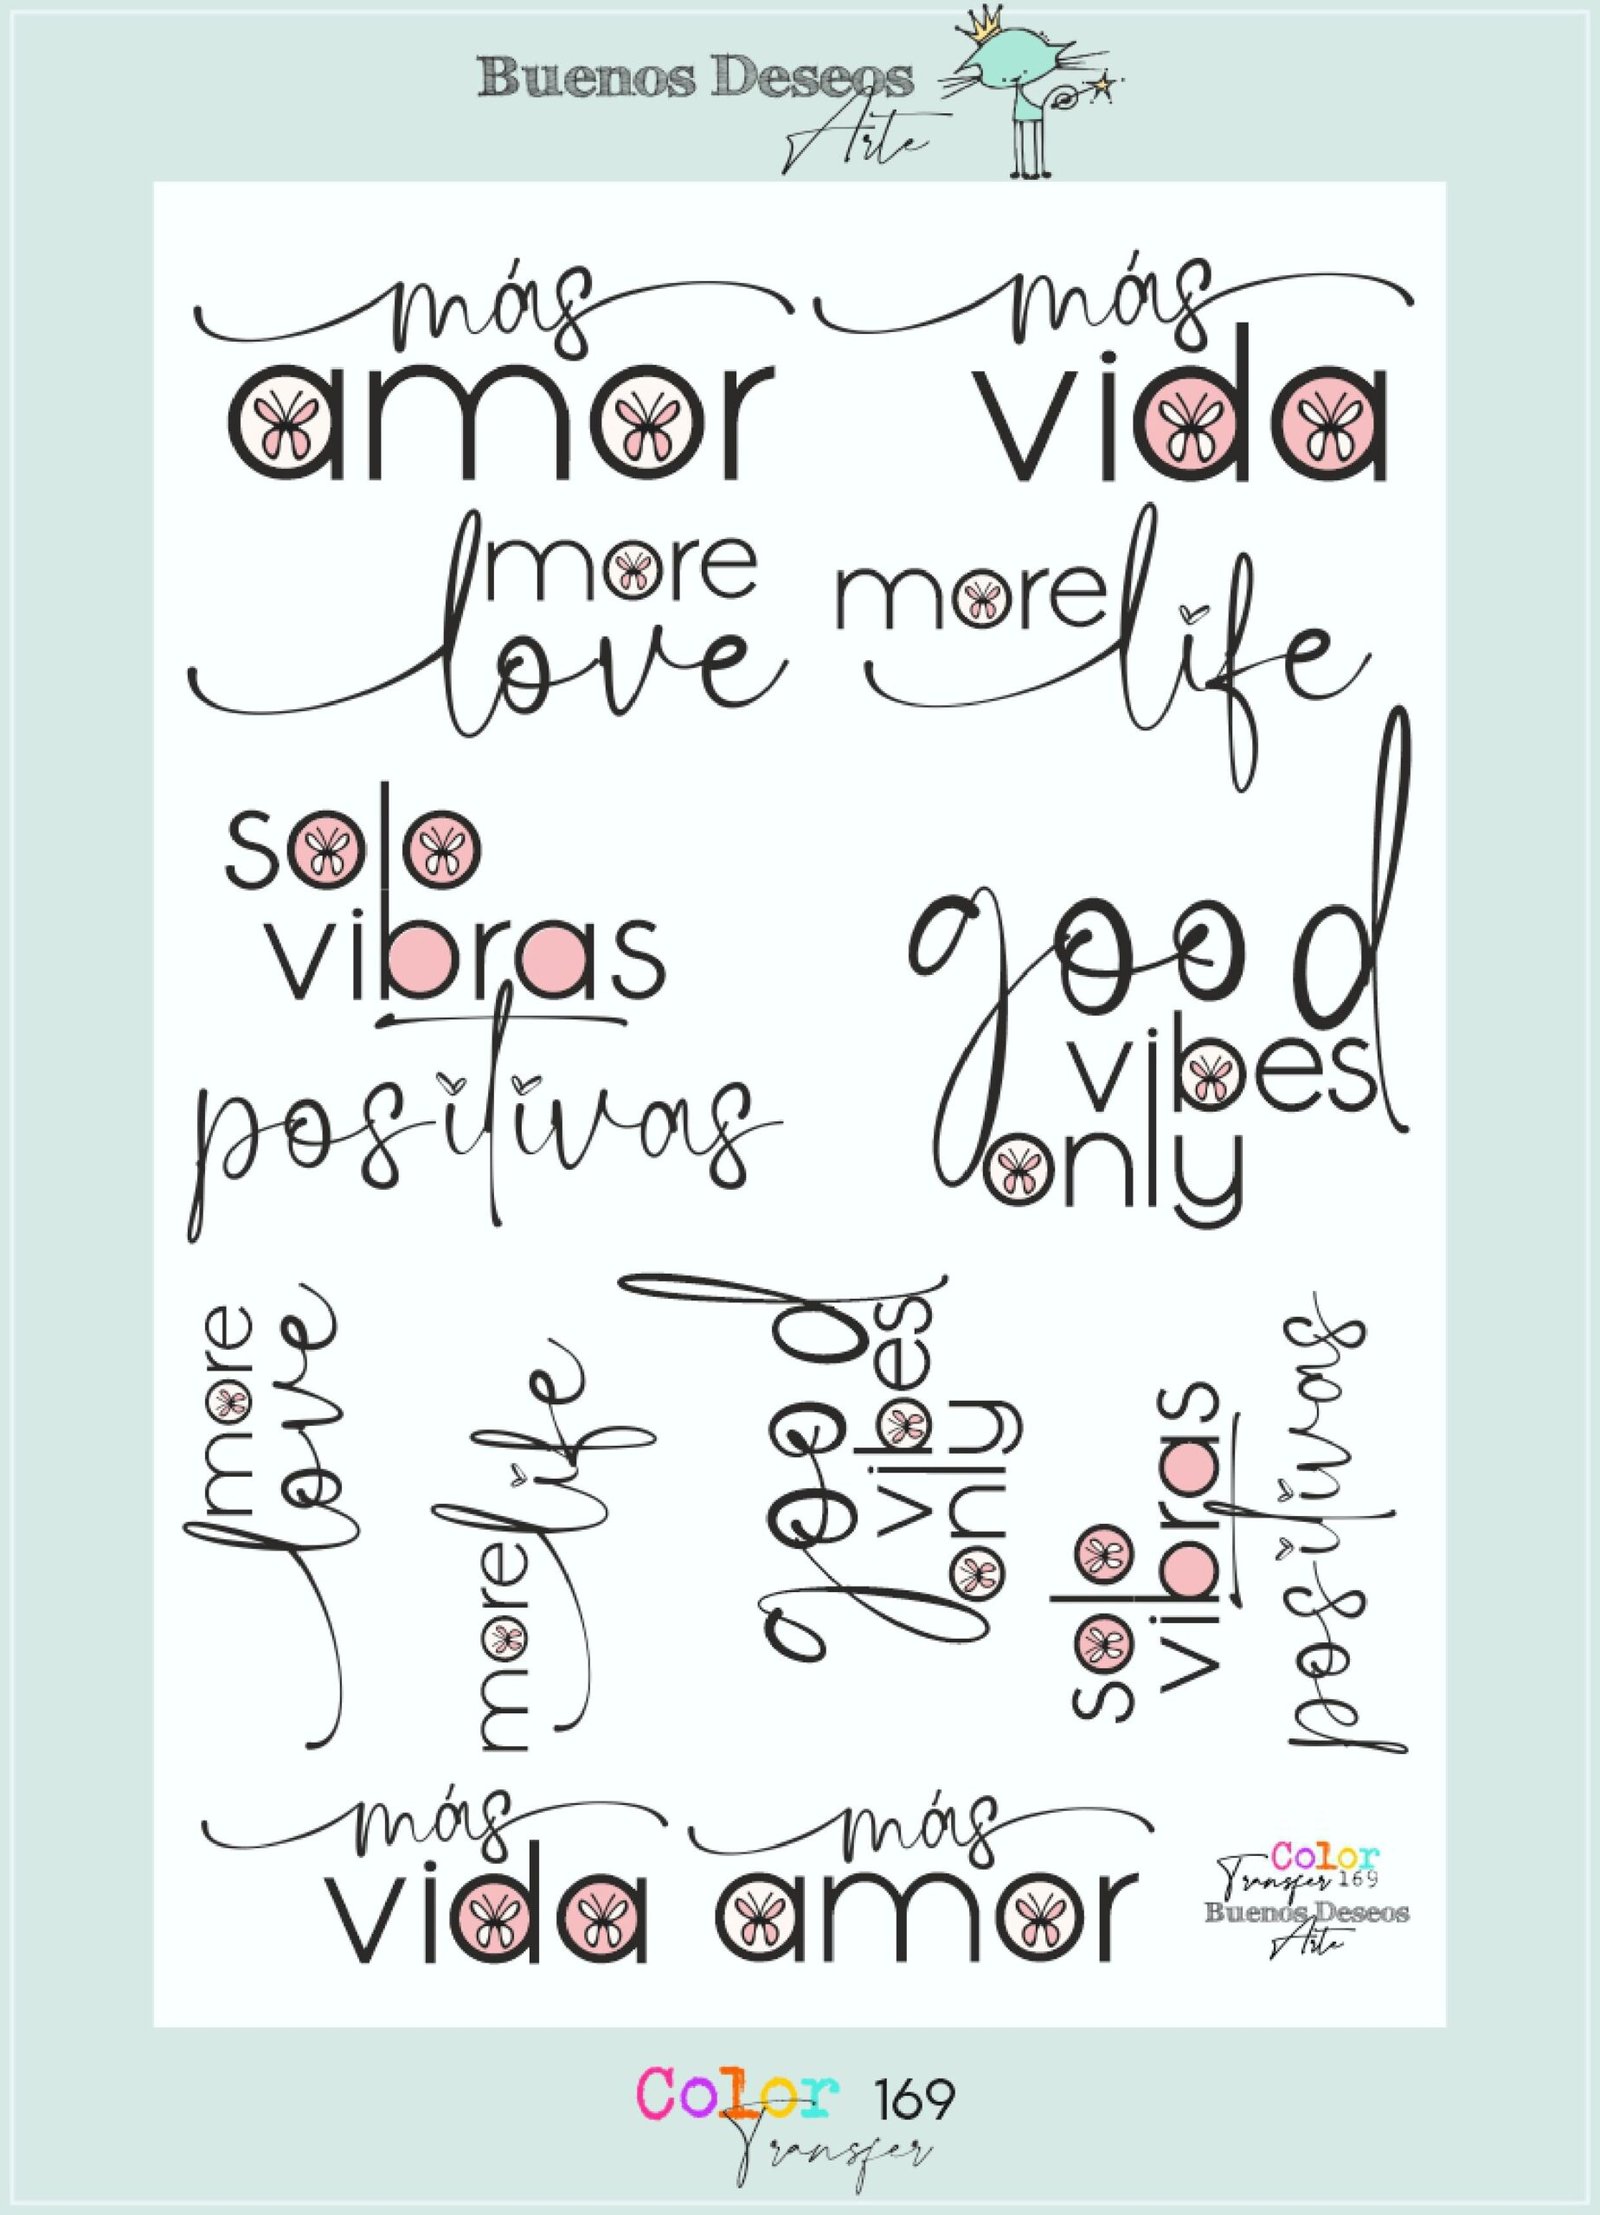 Buenos Deseos
Arte
más
amor
más
vida
more
love
more
life
solo
vibras
positivas
good
vibes
only
more
love
more
life
good
vibes
only
solo
vibras
positivas
más
vida
más
amor
Color
Transfer 169
Buenos Deseos
Arte
Color 169
Transfer